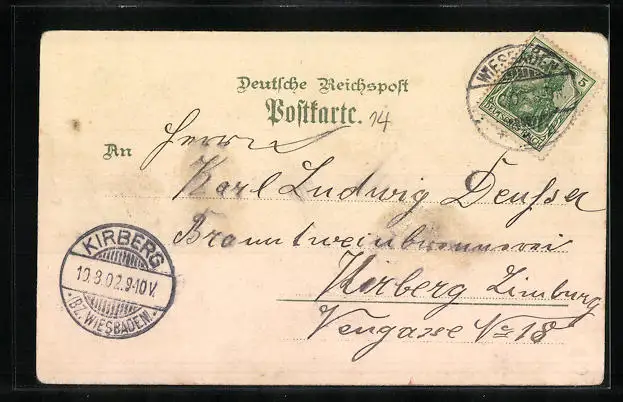 WIESBADEN
5
Deutsche Reichspost
Postkarte. 14
An Herrn
Karl Ludwig
Branntweinbrennerei
Kirberg Limburg
No 18
KIRBERG
19.3.02.9-10V.
*(BZ. WIESBADEN)*